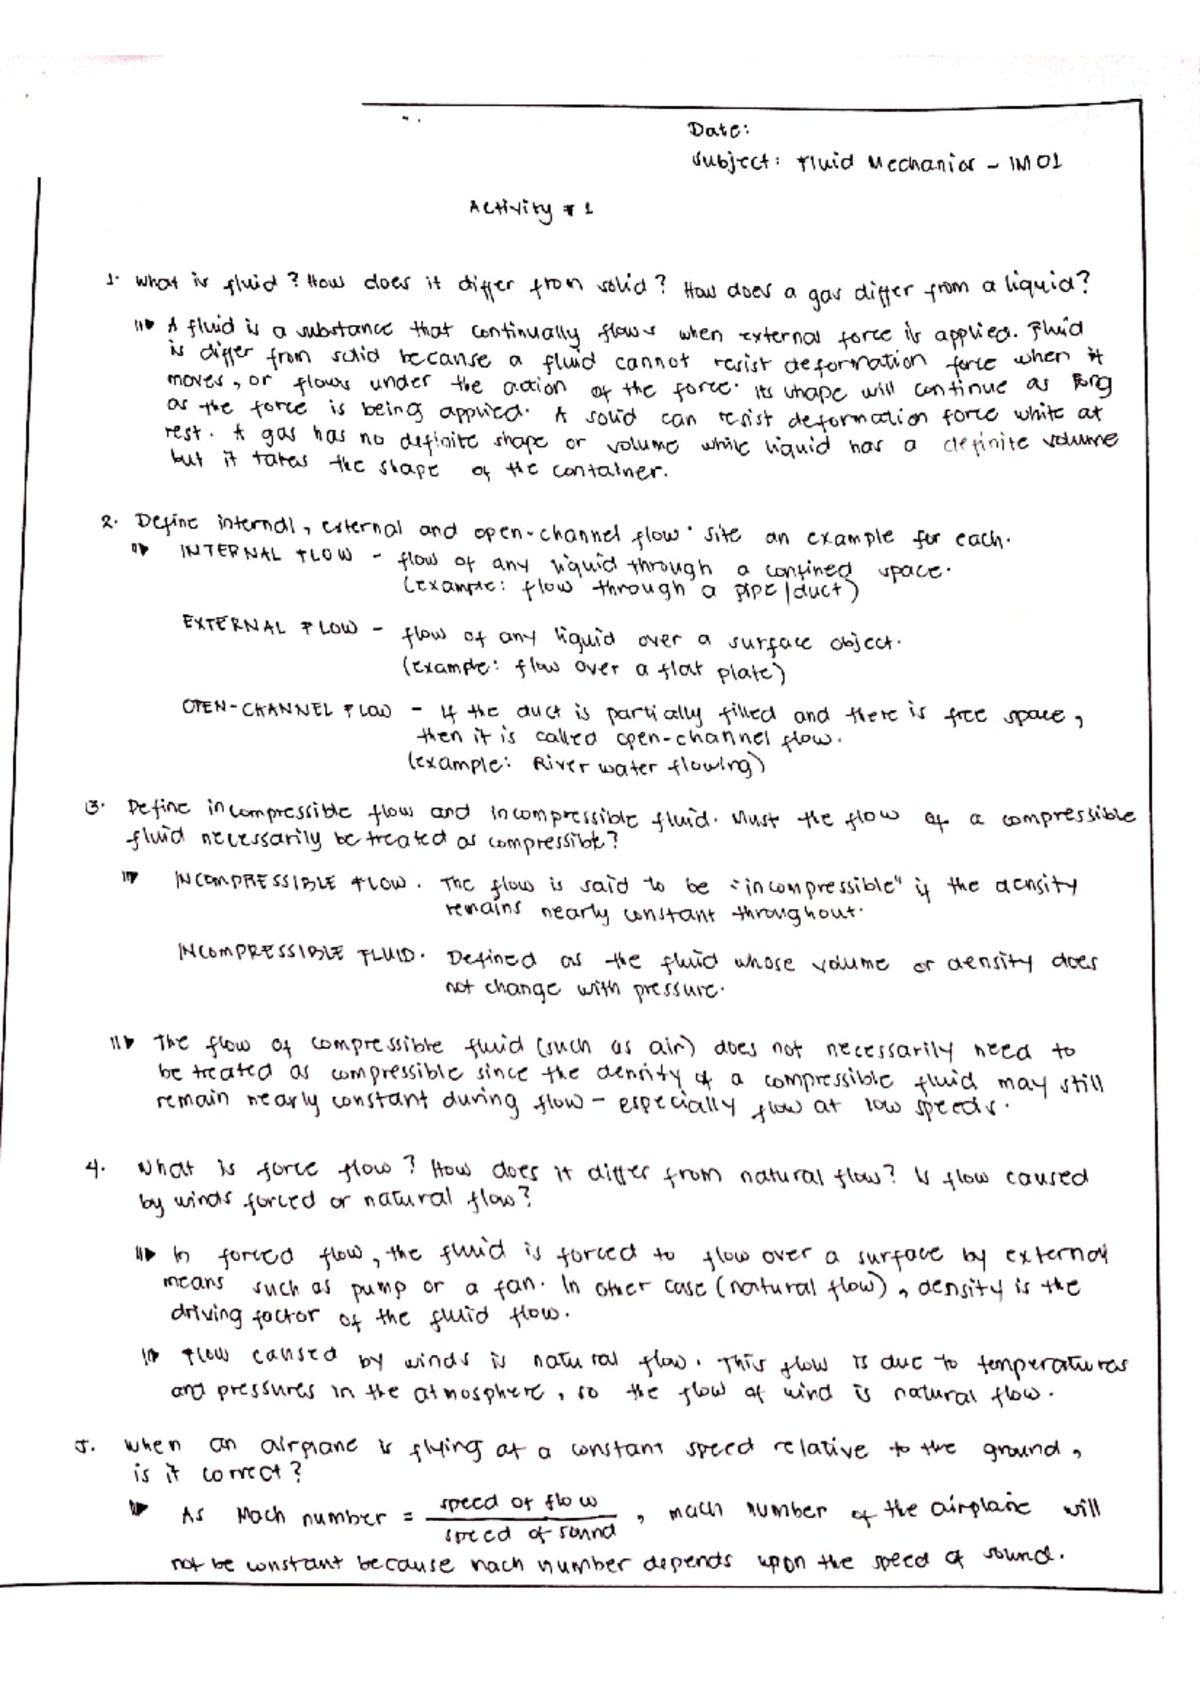 Date:
Subject: Fluid Mechanics - IM01
Activity # 1
1. What is fluid? How does it differ from solid? How does a gas differ from a liquid?
A fluid is a substance that continually flows when external force is applied. Fluid
is differ from solid because a fluid cannot resist deformation force when it
moves, or flows under the action of the force. Its shape will continue as long
as the force is being applied. A solid can resist deformation force while at
rest. A gas has no definite shape or volume while liquid has a definite volume
but it takes the shape of the container.
2. Define internal, external and open-channel flow. Site an example for each.
INTERNAL FLOW - flow of any liquid through a confined space.
(example: flow through a pipe/duct)
EXTERNAL FLOW - flow of any liquid over a surface object.
(example: flow over a flat plate)
OPEN-CHANNEL FLOW - If the duct is partially filled and there is free space,
then it is called open-channel flow.
(example: River water flowing)
3. Define incompressible flow and incompressible fluid. Must the flow of a compressible
fluid necessarily be treated as compressible?
INCOMPRESSIBLE FLOW. The flow is said to be "incompressible" if the density
remains nearly constant throughout.
INCOMPRESSIBLE FLUID. Defined as the fluid whose volume or density does
not change with pressure.
The flow of compressible fluid (such as air) does not necessarily need to
be treated as compressible since the density of a compressible fluid may still
remain nearly constant during flow - especially flow at low speeds.
4. What is force flow? How does it differ from natural flow? Is flow caused
by winds forced or natural flow?
In forced flow, the fluid is forced to flow over a surface by external
means such as pump or a fan. In other case (natural flow), density is the
driving factor of the fluid flow.
Flow caused by winds is natural flow. This flow is due to temperatures
and pressures in the atmosphere, so the flow of wind is natural flow.
5. When an airplane is flying at a constant speed relative to the ground,
is it correct?
As Mach number = speed of flow / speed of sound, mach number of the airplane will
not be constant because mach number depends upon the speed of sound.